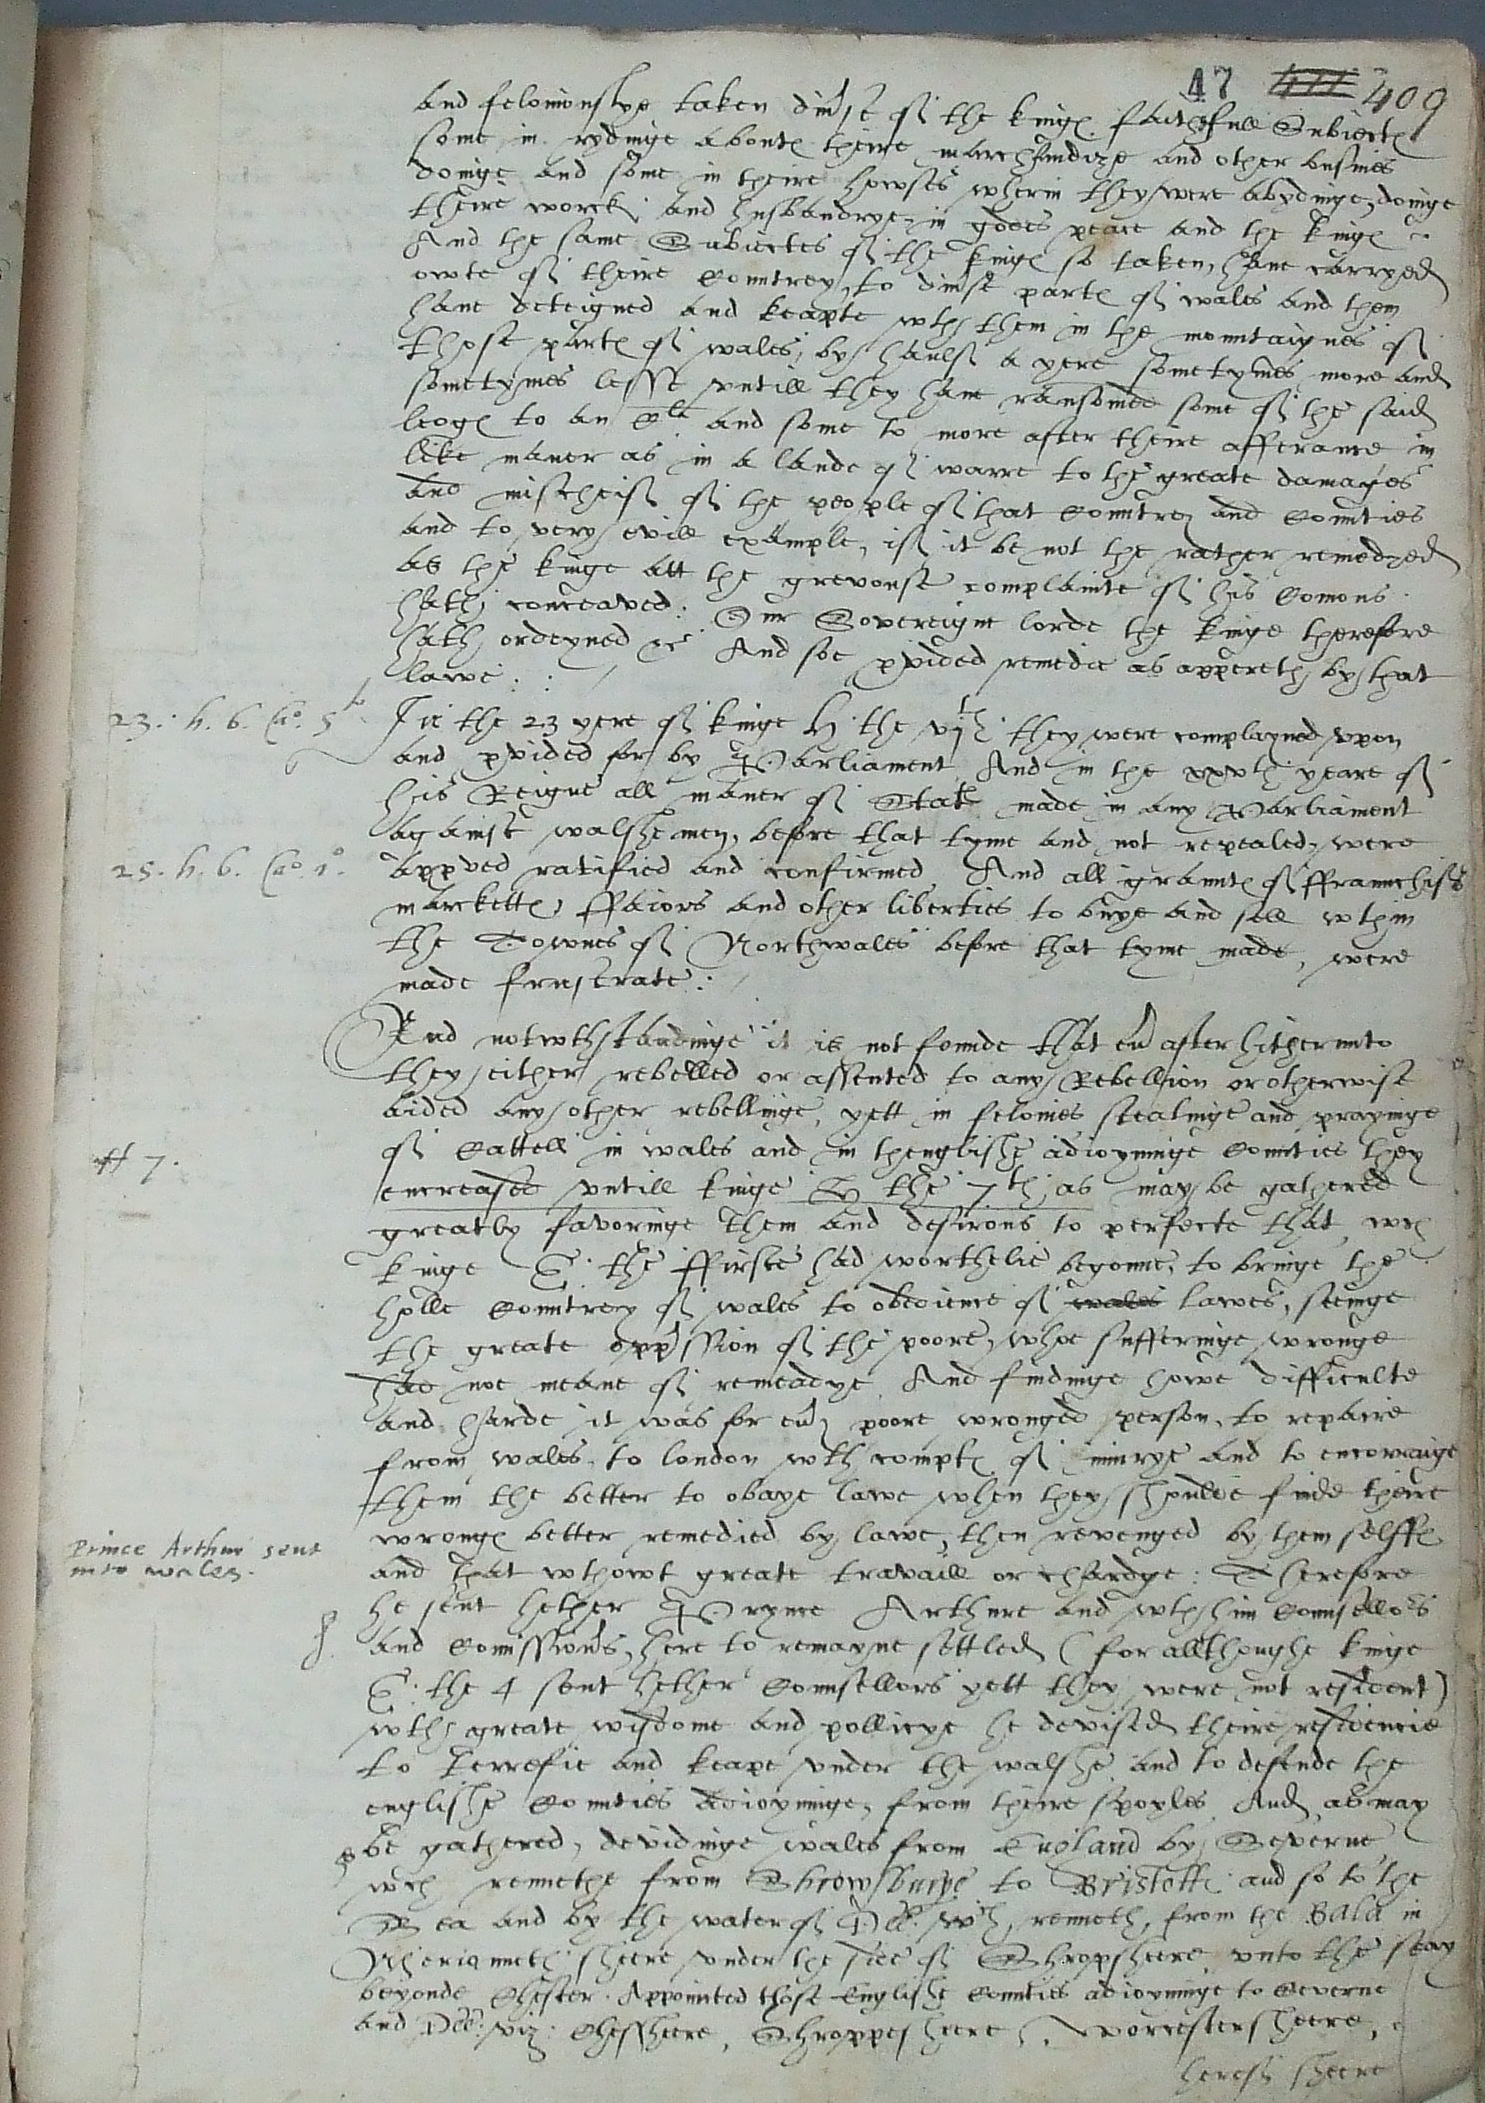 47 411 409
and feloniouslye taken div'se of the kinge faithfull Subiecte
some in rydinge aboute theire marchandize and other busines
doinge and some in theire howses wherin they were abydinge, doinge
theire worcke and husbandrye in godes peace and the kinge
And the same Subiectes of the kinge so taken, have carryed
owte of theire Countrey, to div'se parte of wales and them
have deteigned and keapte wth them in the mountaignes of
those parte of wales, by haulf a yere sometymes more and
sometymes lesse untill they have ransomed some of the said
leoge to an and some to more after theire afferance in
like maner as in a lande of warre to the great damages
and mischeif of the people of that Countrey and Counties
and to very evill example, if it be not the rather remedyed
as the kinge att the grevouse complainte of his Comons
hath conceaved. Our Sovereigne lorde the kinge therefore
hath ordeyned &c And soe p'vided remedie as appereth by that
lawe :
23. h. 6. Cao. 5to
In the 23 yere of kinge H the vjth they were complayned upon
and p'vided for by Parliament And in the xxvth yeare of
his Reigne all maner of Statute made in any Parliament
againste walshemen, before that tyme and not repealed, were
25. h. 6. Cao. 1o.
app'ved ratified and confirmed And all graunte of ffraunchises
marckette, ffaiors and other liberties to buye and sell wthin
the Townes of Northwales before that tyme made, were
made frustrate :
And notwthstandinge it is not founde that ev' after hitherunto
they either rebelled or assented to any Rebellion or otherwise
aided any other rebellinge, yett in felonies stealinge and prayinge
of Cattell in wales and in thenglishe adioyninge Counties they
H 7.
encreased untill kinge H the 7th, as may be gathered
greatly favoringe them and desirous to perfecte that wch
kinge E: the ffirste had worthelie begonne, to bringe the
holle Countrey of wales to obedience of wales lawes, seinge
the great opp'ssion of the poore, whoe sufferinge wronge
had noe meane of remeadye And findinge howe difficulte
and harde it was for ev'y poore wronged person, to repaire
from wales to london wth compte of iniurye and to encoraige
them the better to obaye lawe when they shoulde finde theire
Prince Arthur sent
into wales.
wronge better remedied by lawe, then revenged by them selffe
and that wthowt greate travaill or chardge : Therefore
he sent hether Prynce Arthure and wth him Counsello's
and Comission's, here to remayne settled (for allthoughe kinge
E: the 4 sent hether Counsellors yett they were not resident)
wth great wisdome and pollicye he devised theire residencie
to terrefie and keape under the walshe and to defende the
englishe Counties adioyninge, from theire spoyles And as may
be gathered, devidinge wales from England by Severne
wch renneth from Shrowsburye to Bristoll and so to the
Sea and by the water of Dee wch renneth, from the Bala in
Merionneth sheere under the side of Shropsheere unto the seay
beyonde Chester. Appointed those Englishe Counties adioyninge to Severne
and Dee viz: Chessheere, Shroppesheere, Worcestersheere,
heref: sheere